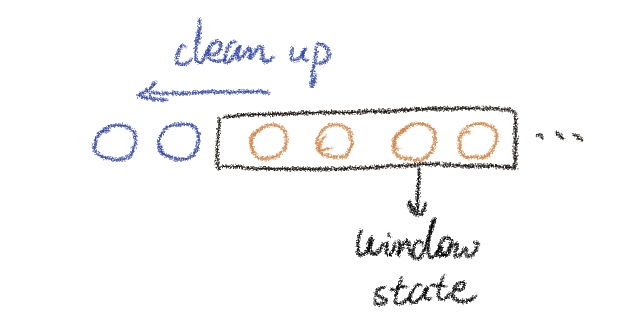 clean up
...
window
state